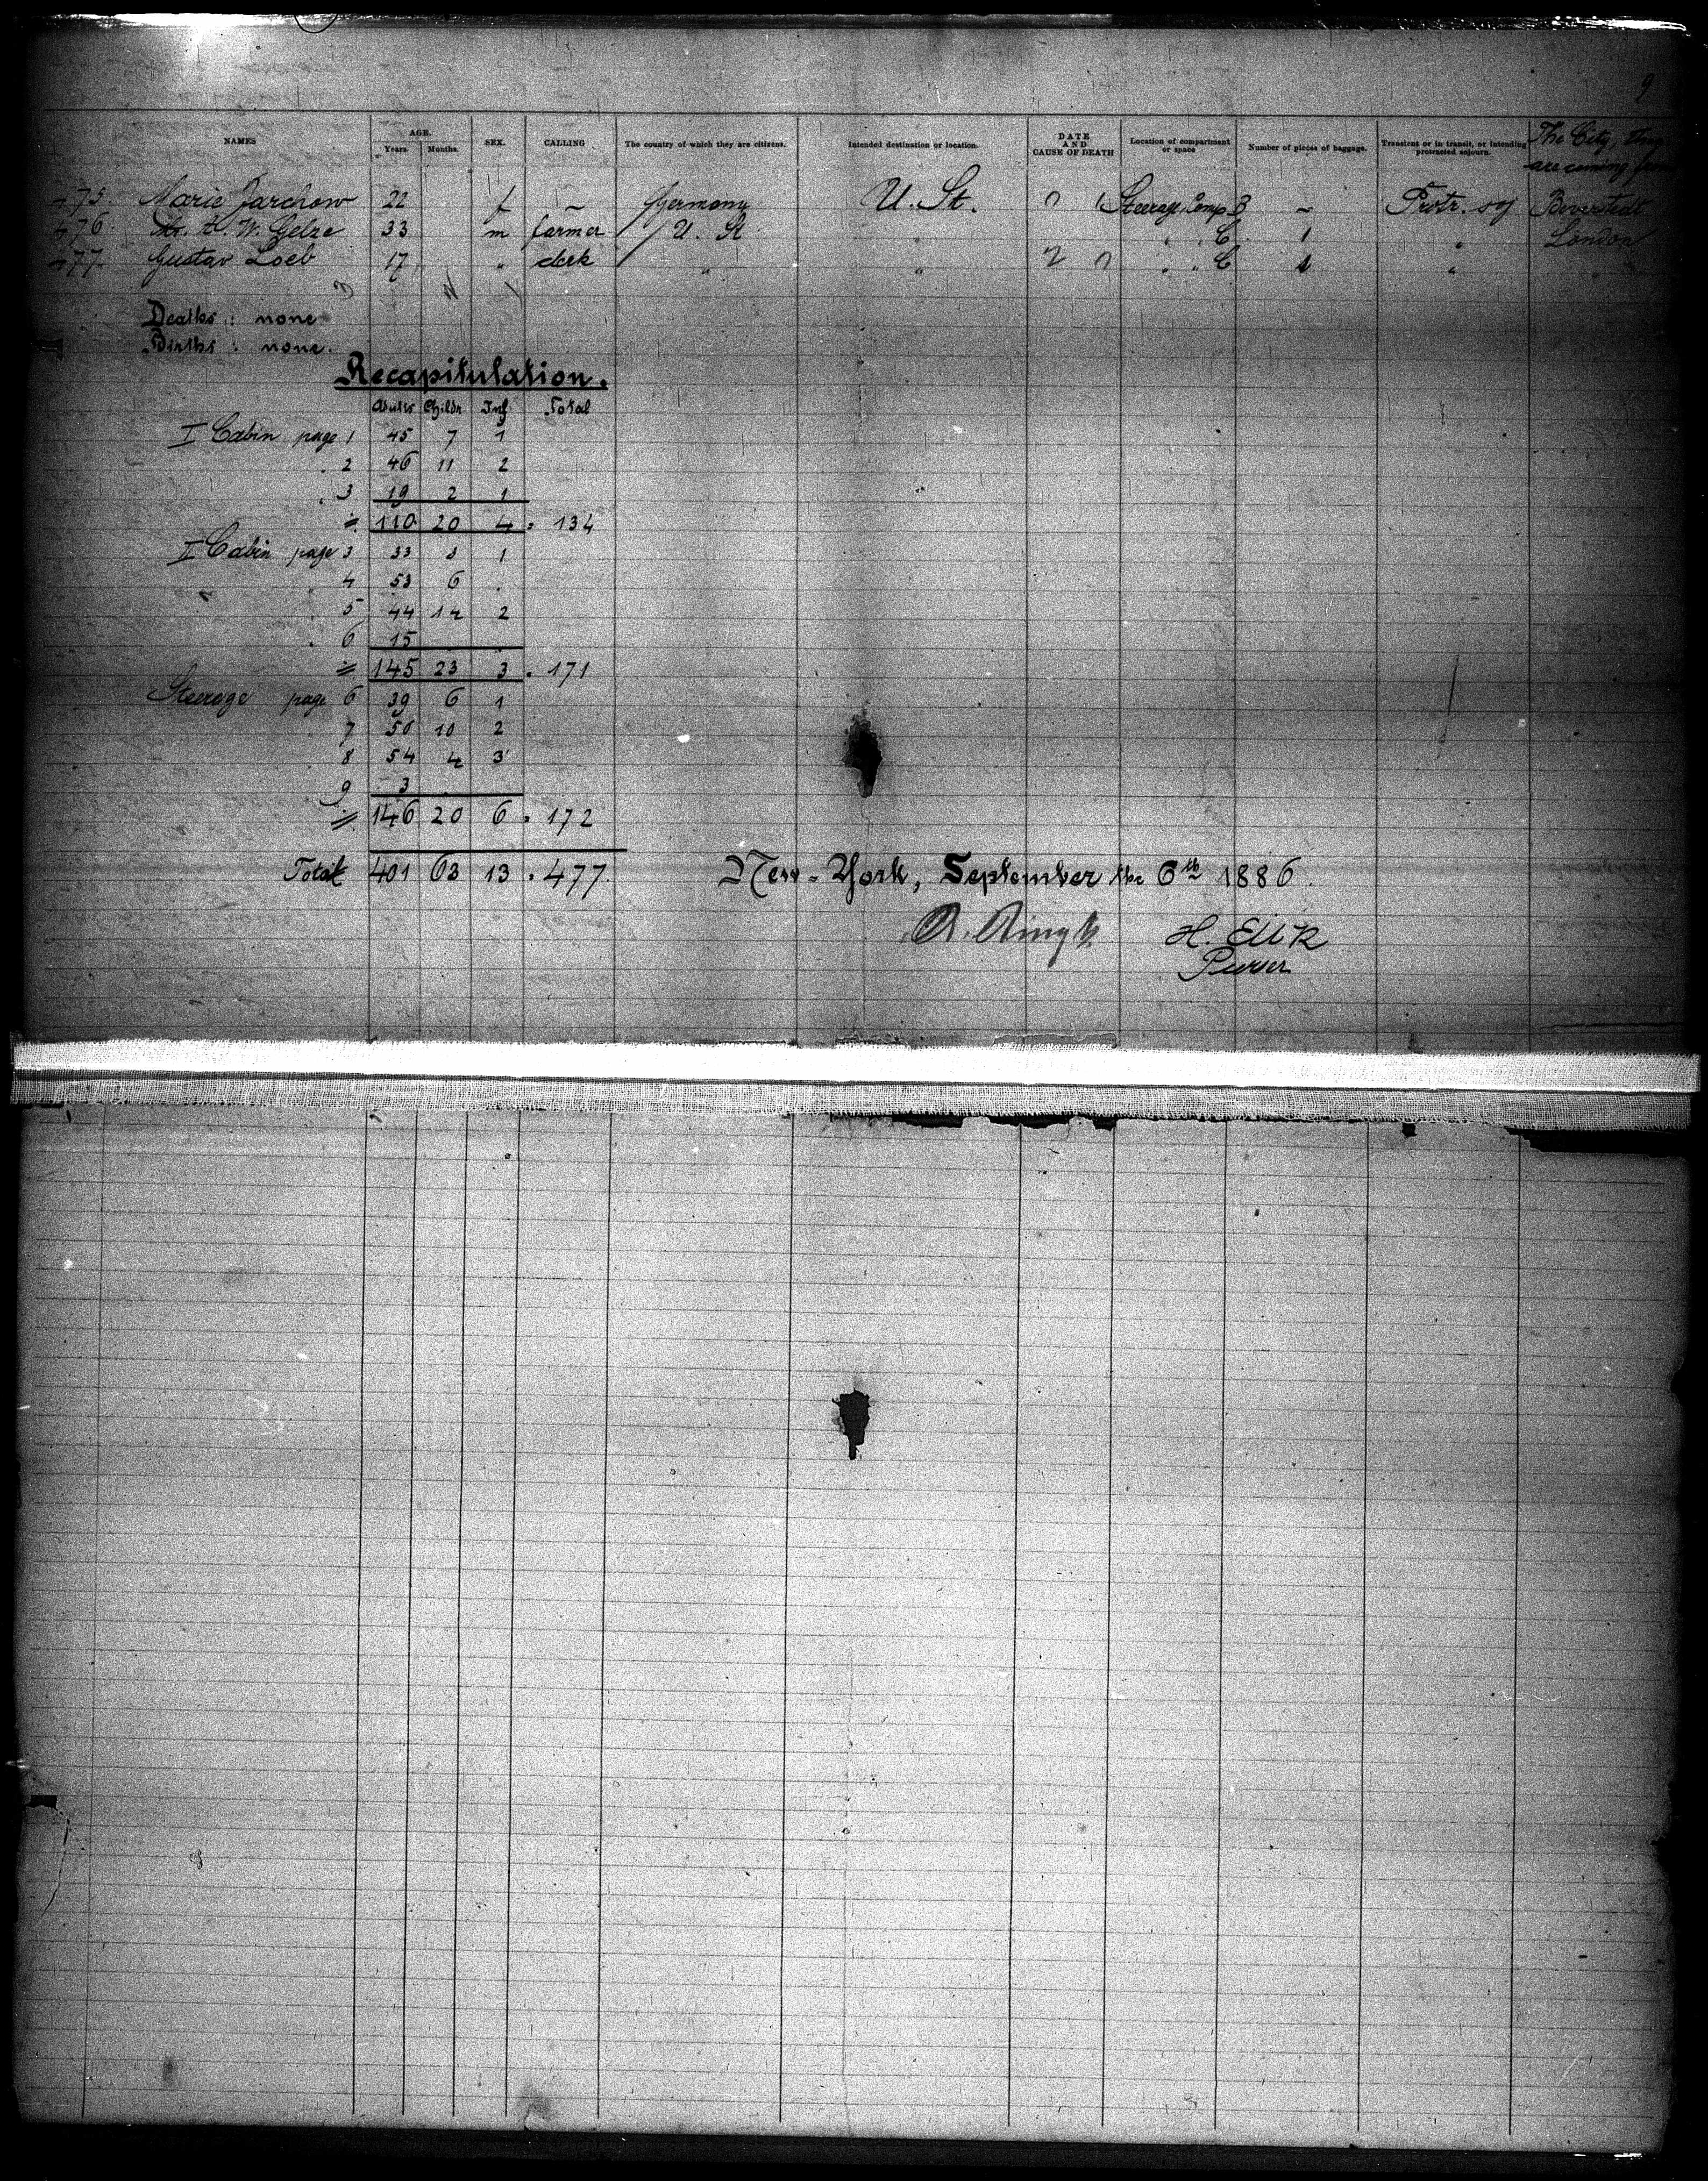 9
NAMES AGE. Years. Months. SEX. CALLING The country of which they are citizens. Intended destination or location. DATE AND CAUSE OF DEATH Location of compartment or space Number of pieces of baggage. Transient or in transit, or intending protracted sojourn. The City they are coming from
475. Marie Jarchow 22 f — Germany U. St. Steerage Comp B — Protr. soj Beverstedt
476. W. Gelze 33 m farmer U. St. " " " C 1 " London
477. Gustav Loeb 17 " clerk " " " " C 1 " "
Deaths : none
Births : none.
Recapitulation.
Adults Childr Inf Total
I Cabin page 1 45 7 1
" 2 46 11 2
" 3 19 2 1
= 110 20 4 = 134
II Cabin page 3 33 3 1
" 4 53 6 .
" 5 44 14 2
" 6 15
= 145 23 3 = 171
Steerage page 6 39 6 1
" 7 50 10 2
" 8 54 4 3
9 3
= 146 20 6 = 172
Total 401 63 13 = 477.
New-York, September the 6th 1886.
H. Ellik
Purser